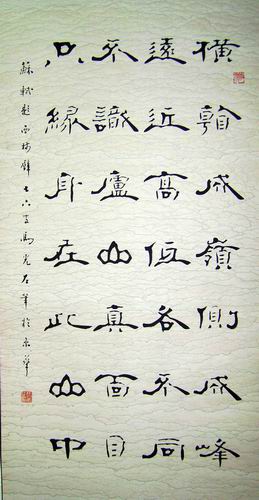 橫看成嶺側成峰
遠近高低各不同
不識廬山真面目
只緣身在此山中
蘇軾題西林壁七六叟馬光左筆於京華